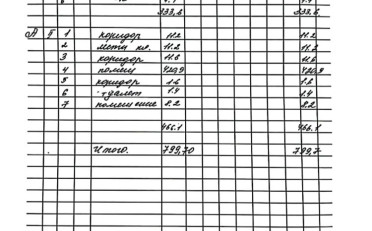 333.6 333.6
А II 1 коридор 11.2 11.2
2 11.2 11.2
3 коридор 11.6 11.6
4 помещ 420,9 420,9
5 коридор 1.6 1.6
6 туалет 1.4 1.4
7 помещение 8.2 8.2
466.1 466.1
Итого. 799,70 799,7